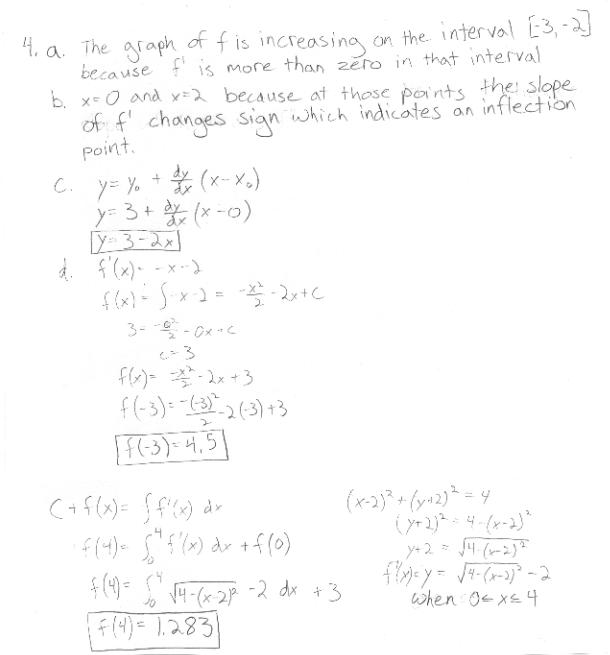 4. a. The graph of f is increasing on the interval [-3, -2]
because f' is more than zero in that interval
b. x=0 and x=2 because at those points the slope
of f' changes sign which indicates an inflection
point.
c. y = y₀ + dy/dx (x-x₀)
y = 3 + dy/dx (x-0)
y = 3-2x
d. f'(x) = -x-2
f(x) = ∫-x-2 = -x²/2 -2x+C
3 = -0²/2 - 0x + C
c = 3
f(x) = -x²/2 - 2x + 3
f(-3) = -(-3)²/2 - 2(-3) + 3
f(-3) = 4.5
C + f(x) = ∫f'(x) dx
f(4) = ∫₀⁴ f'(x) dx + f(0)
f(4) = ∫₀⁴ √4-(x-2)² -2 dx + 3
f(4) = 1.283
(x-2)² + (y+2)² = 4
(y+2)² = 4-(x-2)²
y+2 = √4-(x-2)²
f'(x) = y = √4-(x-2)² - 2
when 0≤x≤4